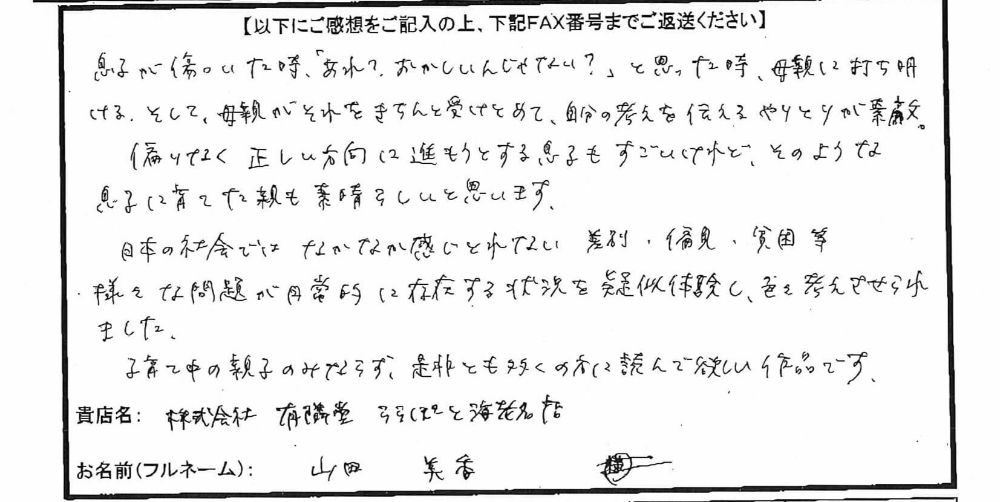 【以下にご感想をご記入の上、下記FAX番号までご返送ください】
息子が傷ついた時、「あれ？おかしいんじゃない？」と思った時、母親に打ち明
ける。そして、母親がそれをきちんと受けとめて、自分の考えを伝えるやりとりが素敵。
偏りなく正しい方向に進もうとする息子もすごいけれど、そのような
息子に育てた親も素晴らしいと思います。
日本の社会ではなかなか感じとれない差別・偏見・貧困等
様々な問題が日常的に存在する状況を疑似体験し、色々考えさせられ
ました。
子育て中の親子のみならず、是非とも多くの方に読んで欲しい作品です。
貴店名：株式会社 有隣堂 ららぽーと海老名店
お名前(フルネーム)：山田 美香